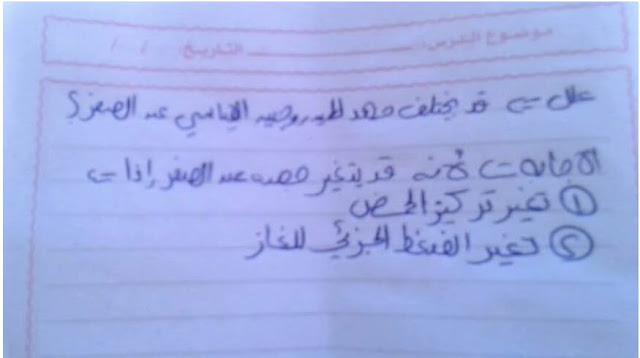 موضوع الدرس: التاريخ: / /
علل :- قد يختلف جهد الهيدروجين القياسي عن الصفر؟
الاجابه :- لأنه قد يتغير جهده عن الصفر إذا :-
① تغير تركيز الحمض
② تغير الضغط الجزئي للغاز